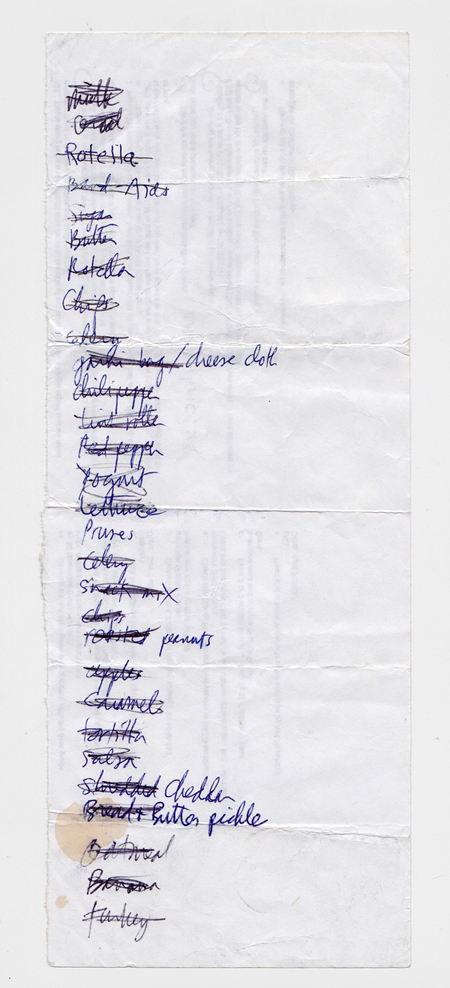 Milk
Rotella
Band-Aids
Butter
Rotella
Chips
Celery
bag / cheese cloth
Chili pepper
Lint roller
Red pepper
Yogurt
Lettuce
Prunes
Celery
Snack mix
Chips
roasted peanuts
apples
Caramels
tortilla
Salsa
Shredded Cheddar
Bread + Butter pickle
Oatmeal
Banana
Turkey